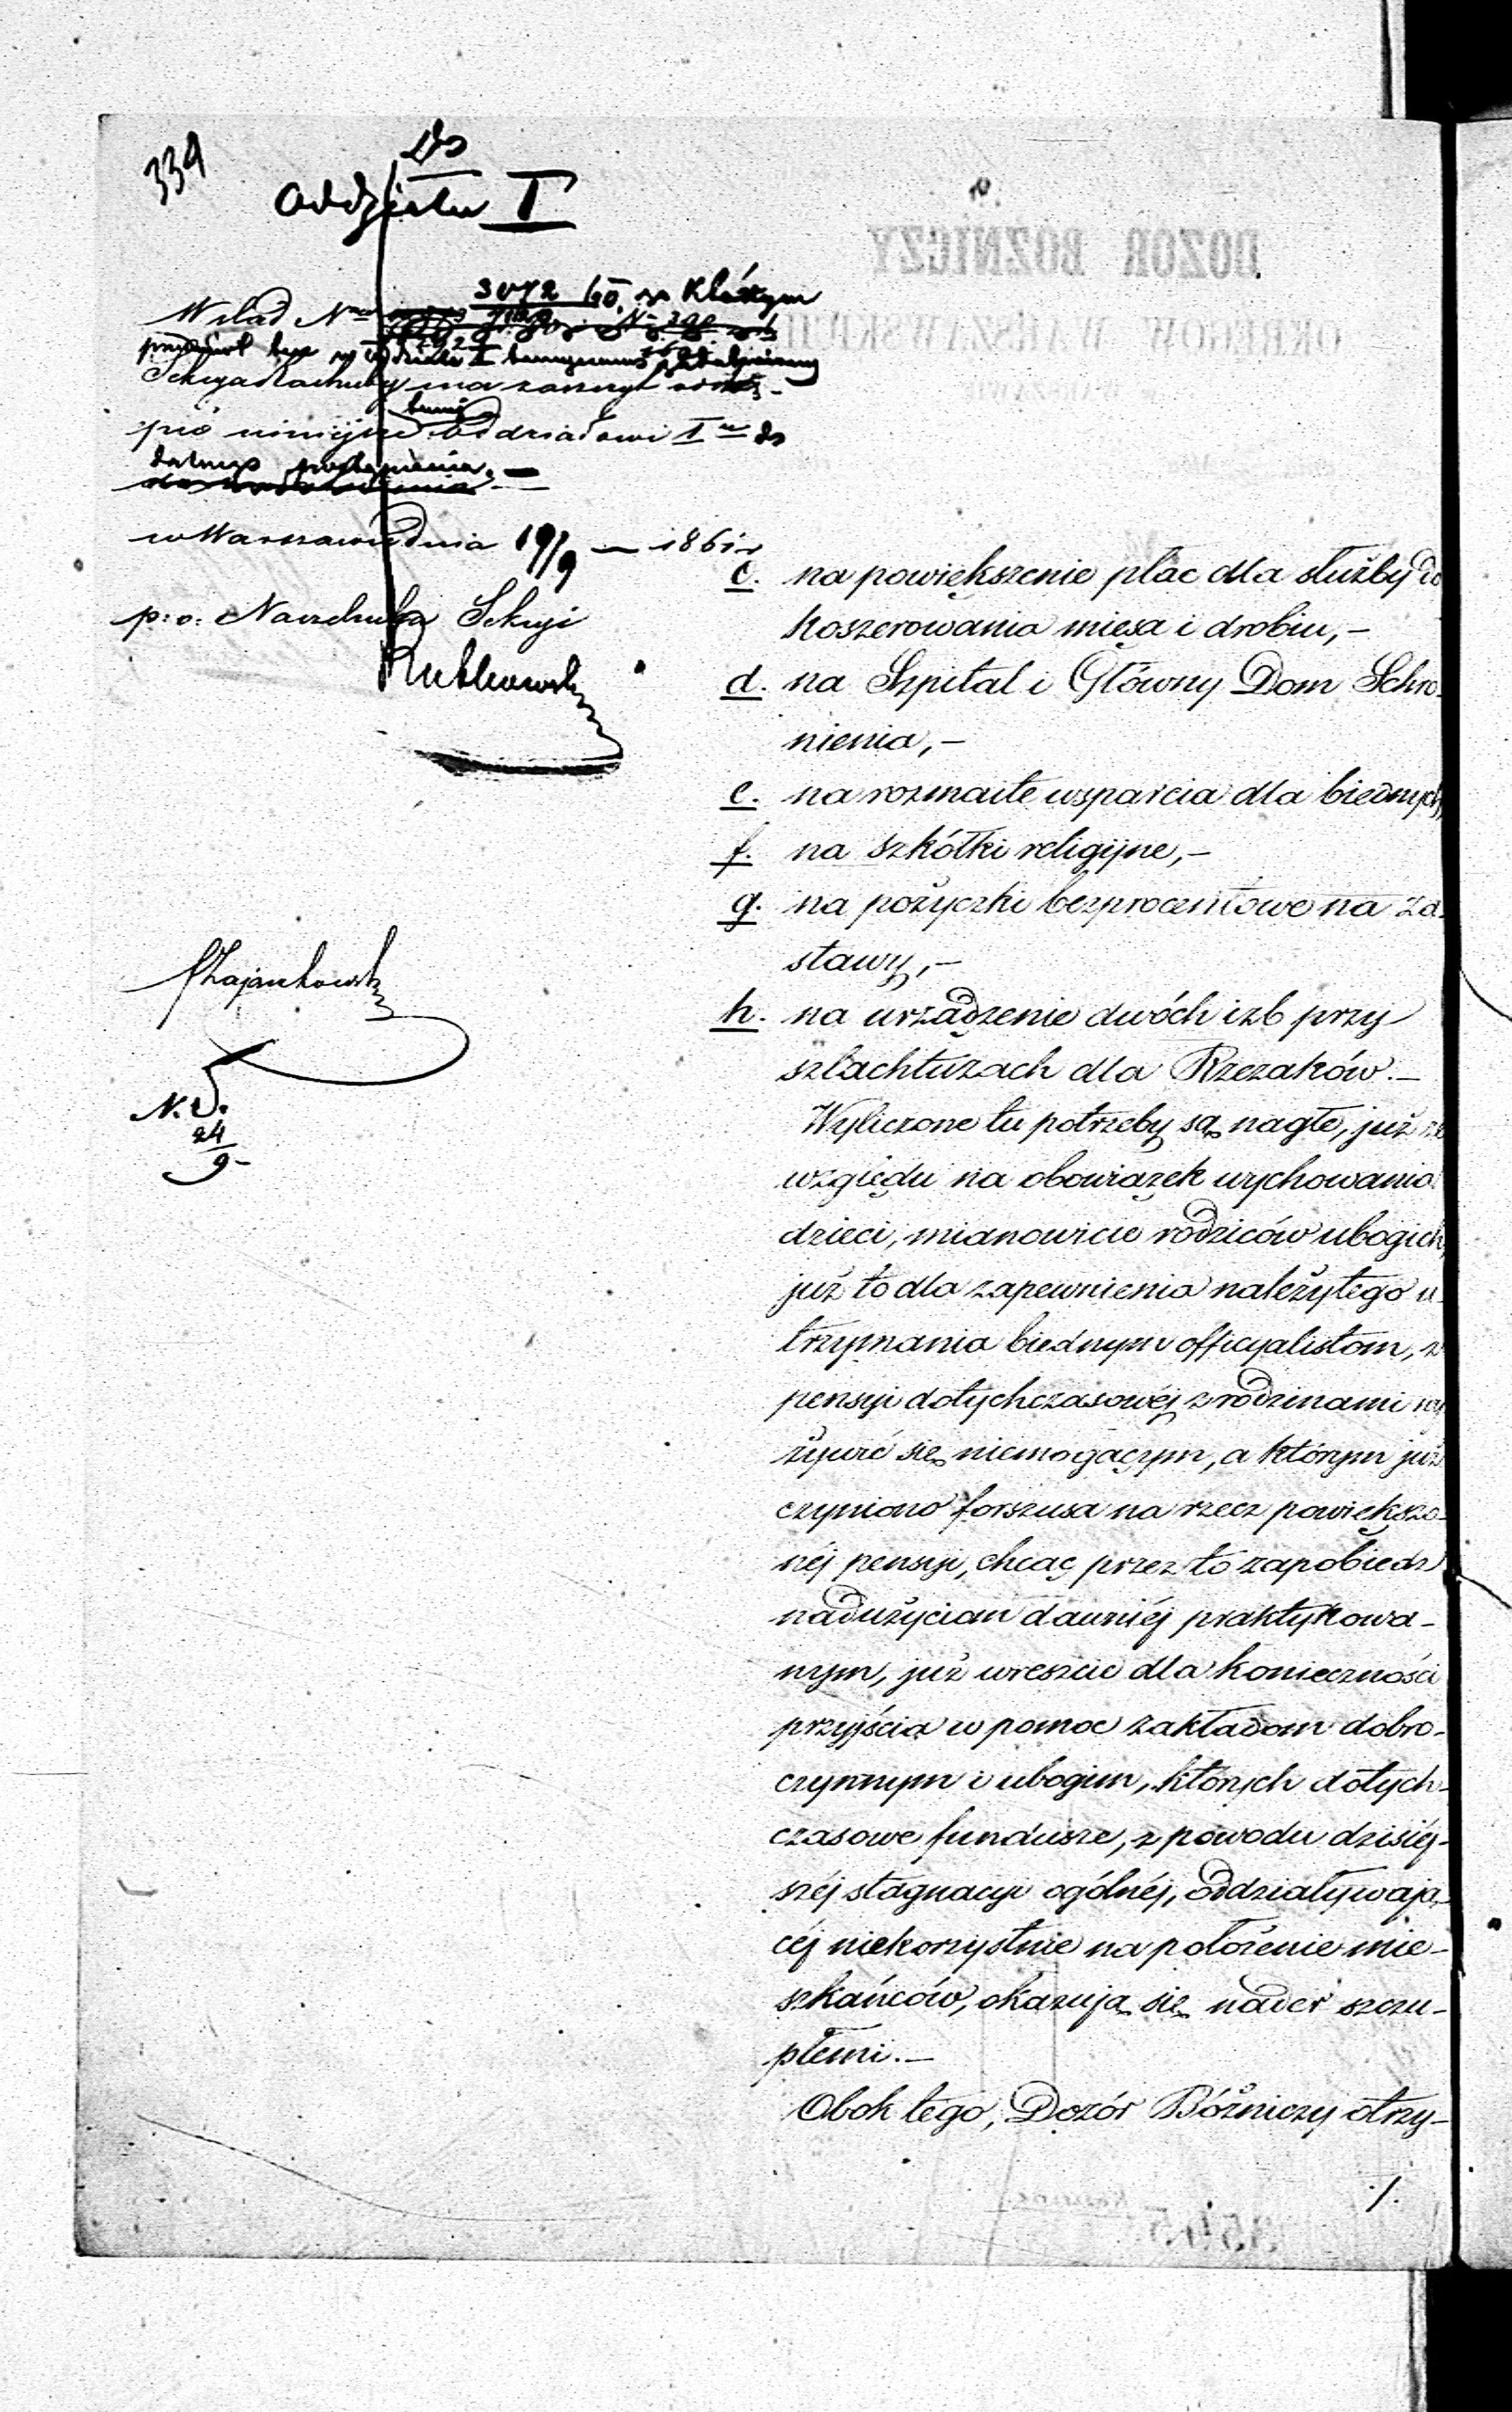 334
Do
Oddziału I
W ślad Nru
3072
w którym
Sekcya Rachuby ma zaszczyt
niniejsze Oddziałowi I do
dalszego postąpienia. —
w Warszawie dnia 19/9 — 1861 r
p: o: Naczelnika Sekcyi
N. D.
24
9
c. na powiększenie płac dla służby do
koszerowania mięsa i drobiu, —
d. na Szpital i Główny Dom Schro-
nienia, —
e. na rozmaite wsparcia dla biednych,
f. na szkółki religijne, —
g. na pożyczki bezprocentowe na za-
stawy, —
h. na urządzenie dwóch izb przy
szlachtuzach dla Rzezaków. —
Wyliczone tu potrzeby są nagłe, już ze
względu na obowiązek wychowania
dzieci, mianowicie rodziców ubogich,
już to dla zapewnienia należytego u-
trzymania biednym officyalistom, z
pensyi dotychczasowéj z rodzinami wy
żywić się niemogącym, a którym już
czyniono forszusa na rzecz powiększo-
néj pensyi, chcąc przez to zapobiedz
nadużyciom dawniéj praktykowa-
nym, już wreszcie dla konieczności
przyjścia w pomoc zakładom dobro-
czynnym i ubogim, których dotych-
czasowe fundusze, z powodu dzisiéj-
széj stagnacyi ogólnéj, oddziaływają-
céj niekorzystnie na położenie mie-
szkańców, okazują się nader szczu-
płemi. —
Obok tego, Dozór Bóżniczy otrzy-
./.